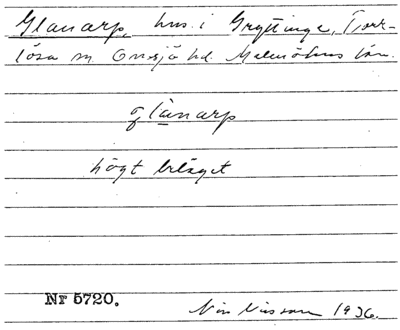 Glanarp, hus i Gryttinge, Torr-
lösa sn Onsjö hd. Malmöhus län.
glànarp
högt beläget
Nr 5720.
Nils Nilsson 1936.